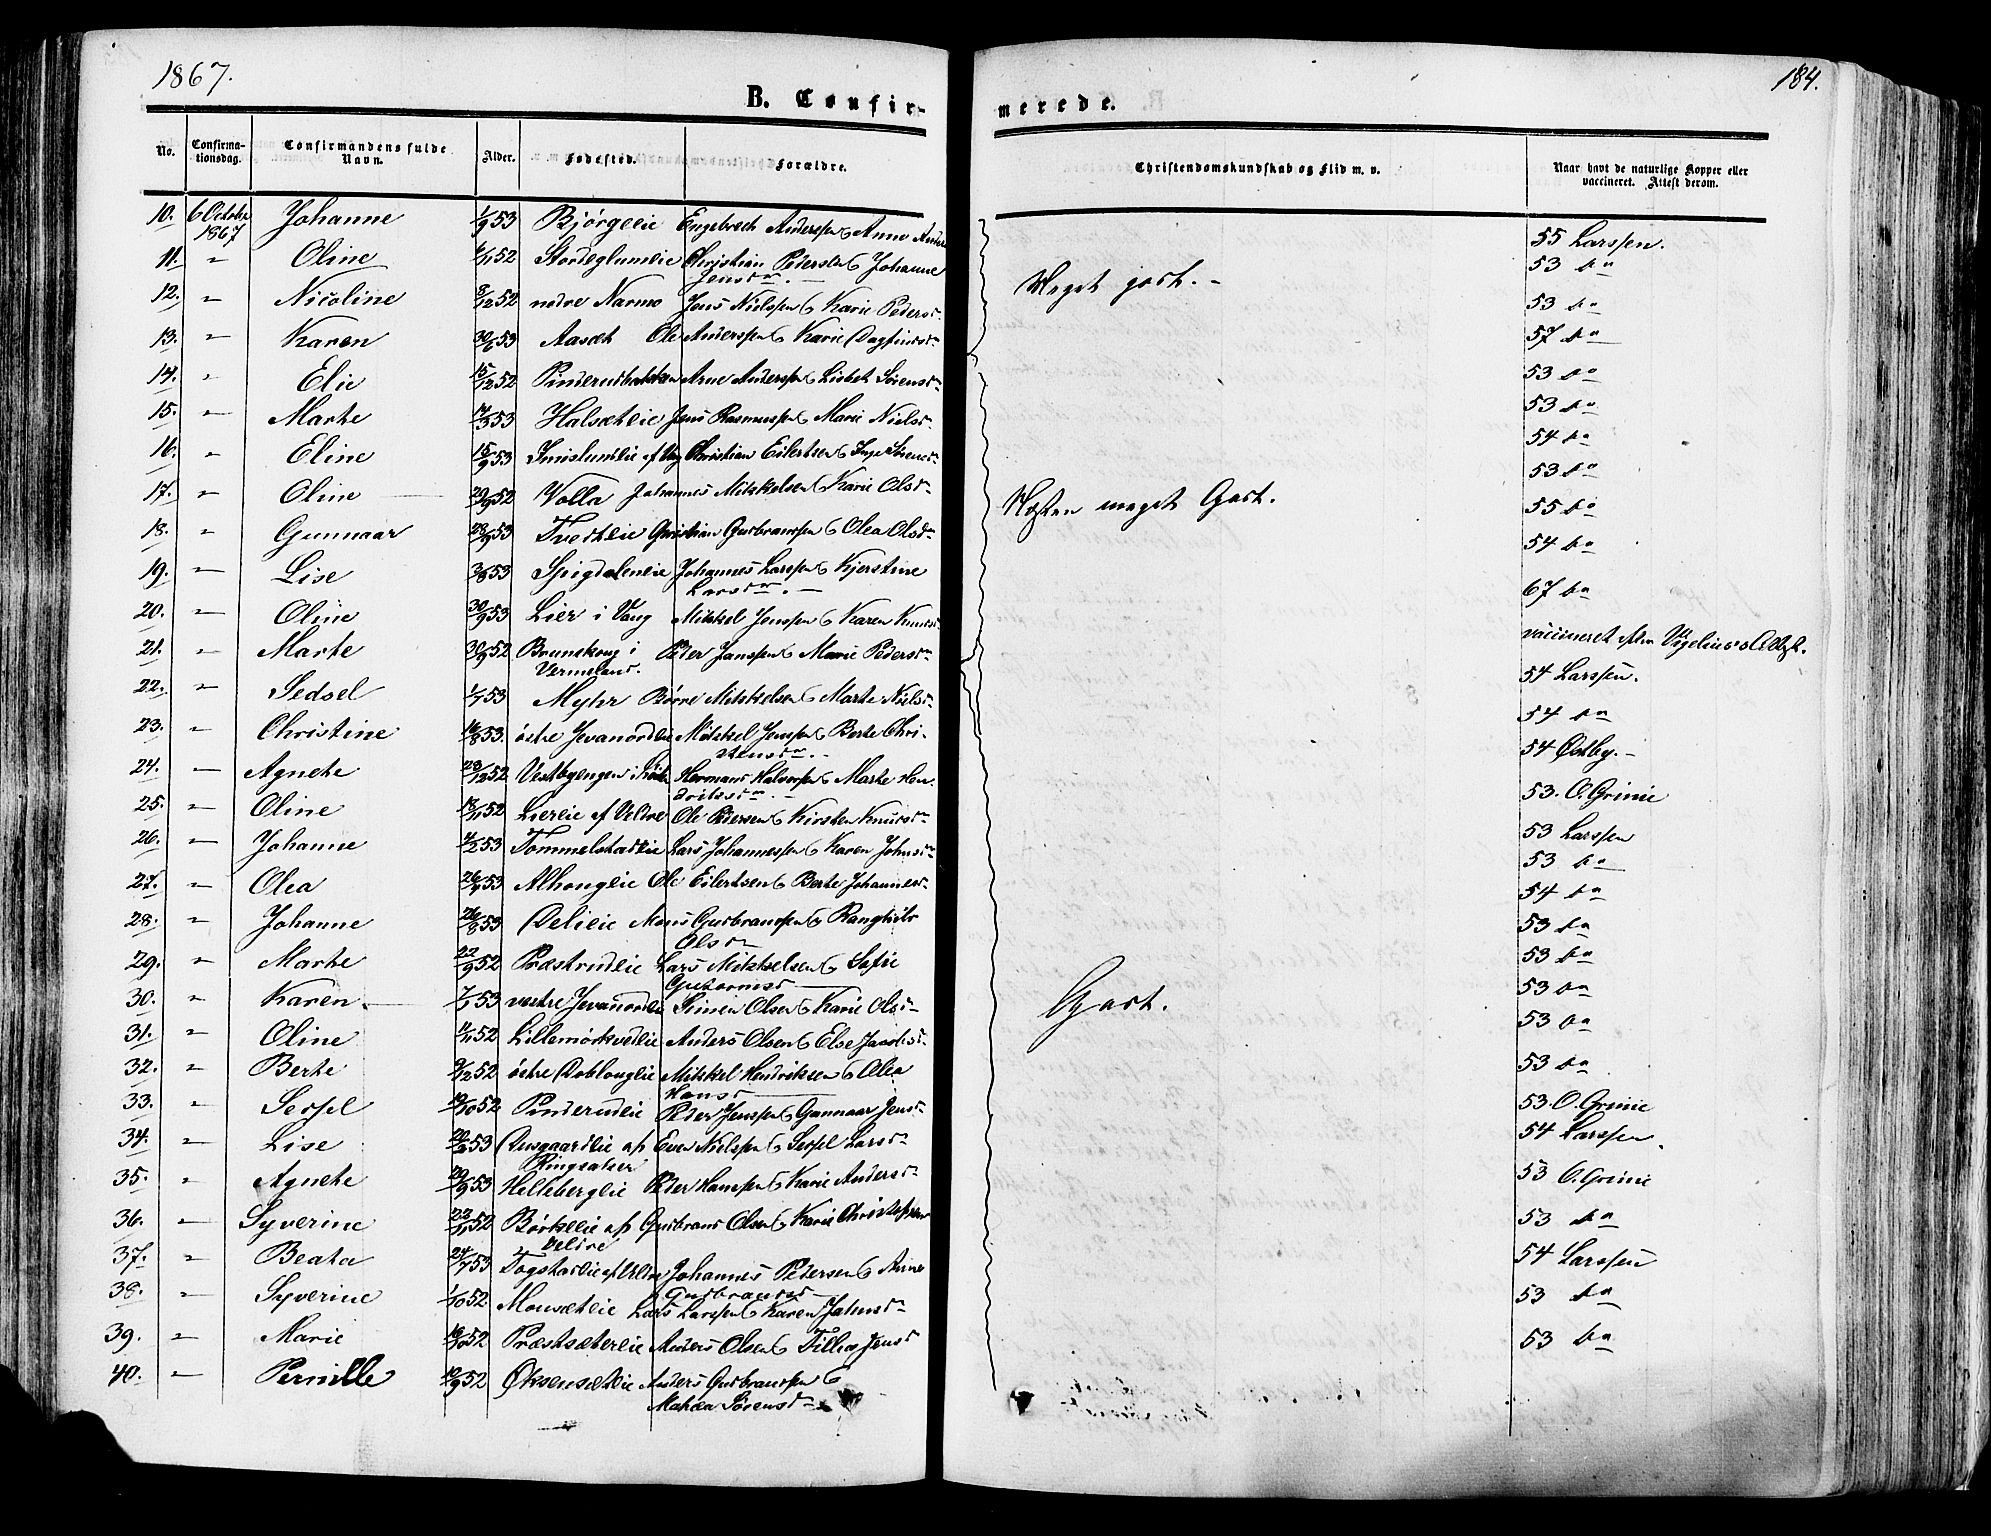 1867.
184.
B. Confir-
merede.
No.
Confirma-
tionsdag.
Confirmandens fulde
Navn.
Alder.
Fødested.
Forældre.
Christendomskundskab og Flid m. v.
Naar havt de naturlige Kopper eller
vaccineret. Attest derom.
10. 6 Octobr 1867 Johanne 1/9 53 Bjørgeeie Engebrech Anderssen & Anne Anders 55 Larssen.
11. " Oline 52 Christian Pedersen & Johanne Jensdn. - 53 do
Meget godt. -
12. " Nicoline 8/12 52 nedre Narmo Jens Nielssen & Karie Pedersd 53 do
13. " Karen 30/6 53 Aasæt Ole Anderssen & Karie Dagfinsdn 57 do
14. " Elie 15/12 52 Pinderudbakken Arne Anderssen & Lisbet Sørensdn 53 do
15. " Marte 17/3 53 Halsæteie Jens Rasmussen & Marie Nielsd. 53 do
16. " Eline 15/9 53 Christian Eilertsen & Inge 54 do
17. " Oline 29/9 52 Volla Johannes Mikkelsen & Karie Olsd 53 do
Næsten meget Godt.
18. " Gunnaar 28/9 53 Tvesteie Christian Gudbranssen & Olea Olsdn 55 do
19. " Lise 3/8 53 Spigdaleneie Johannes Larssen & Kjerstine Larsdn. - 54 do
20. " Oline 30/9 53 Lier i Vang Mikkel Jenssen & Karen Knudsd 67 do
21. " Marte 30/9 52 Brunskoug i Vermeland. Peder Janssen & Marie Pedersdn vaccineret
22. " Sedsel 1/7 53 Myhr Børre Mikkelsen & Marte Nielsd 54 Larssen.
23. " Christine 16/8 53. østre Jevanordeie Mikkel Jenssen & Berte Christensdn. - 54 do
24. " Agnete 23/12 52 Vestbyengen Herman Halvorssen & Marte Hendriksdn. - 54 Østby. -
25. " Oline 18/11 52 Liereie af Veldre Ole Pedersen & Kirsten Knudsdn 53. O. Grinie
26. " Johanne 4/2 53 Tommelstadeie Lars Johannessen & Karen Johnsdn 53 Larssen
27. " Olea 53 Alhougeie Ole Eilertsen & Berte Johannesd 53 do
28. " Johanne 26/8 53 Delieie Mons Gudbranssen & Ranghild Olsd 54 do
29. " Marte 22/9 52 Præstrudeie Lars Mikkelsen & Sofie Gutormsd 53 do
30. " Karen 7/1 53 vestre Jevanordeie Simen Olsen & Karie Olsd 53 do
Godt.
31. " Oline 52 Lillemørkvedeie Anders Olsen & Else Jacobsd 53 do
32. " Berte 9/12 52 østre Doblougeie Mikkel Hendriksen & Olea Hansd 53 do
33. " Sessel 19/10 52 Pinderudeie Peder Jenssen & Gunnaar Jensd 53. O. Grinie
34. " Lise 53 af Ringsaker Even Nielssen & Sessel Larsdn 54 Larssen.
35. " Agnete 20/9 53 Hellebergeie Peder Hanssen & Karie Andersdn 53 O. Grinie
36. " Syverine 22/11 52 Børkeeie af Veldre Gudbrand Olsen & Karie 53 do
37. " Beata 24/7 53 Johannes Petersen & Anne Gudbransd 54 Larssen
38. " Syverine 1/10 52 Mousæteie Lars Larssen & Karen Johnsdn 53 do
39. " Marie 16/10 52 Præstsætereie Anders Olsen & Tillia Jensd 53 do
40. " Pernille 10/9 52 Øksensæteie Anders Gudbranssen & Mahea Sørensd